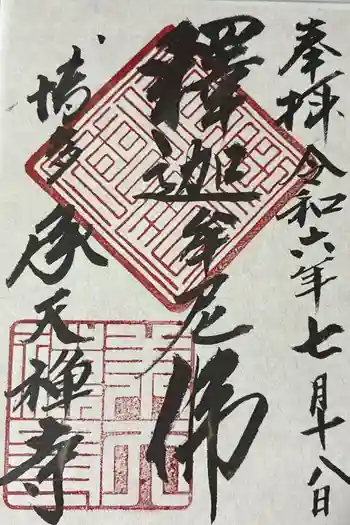 奉拝 令和六年七月十八日
釋迦牟尼佛
博多 承天禅寺